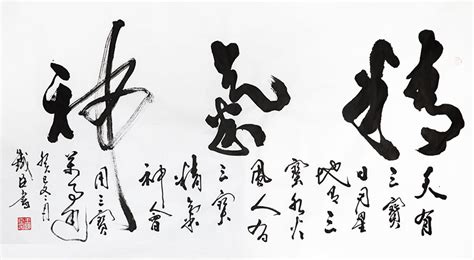 精氣神
天有
三寶
日月星
地有三
寶水火
風人有
三寶
精氣
神會
用三寶
萬事通
癸巳冬月